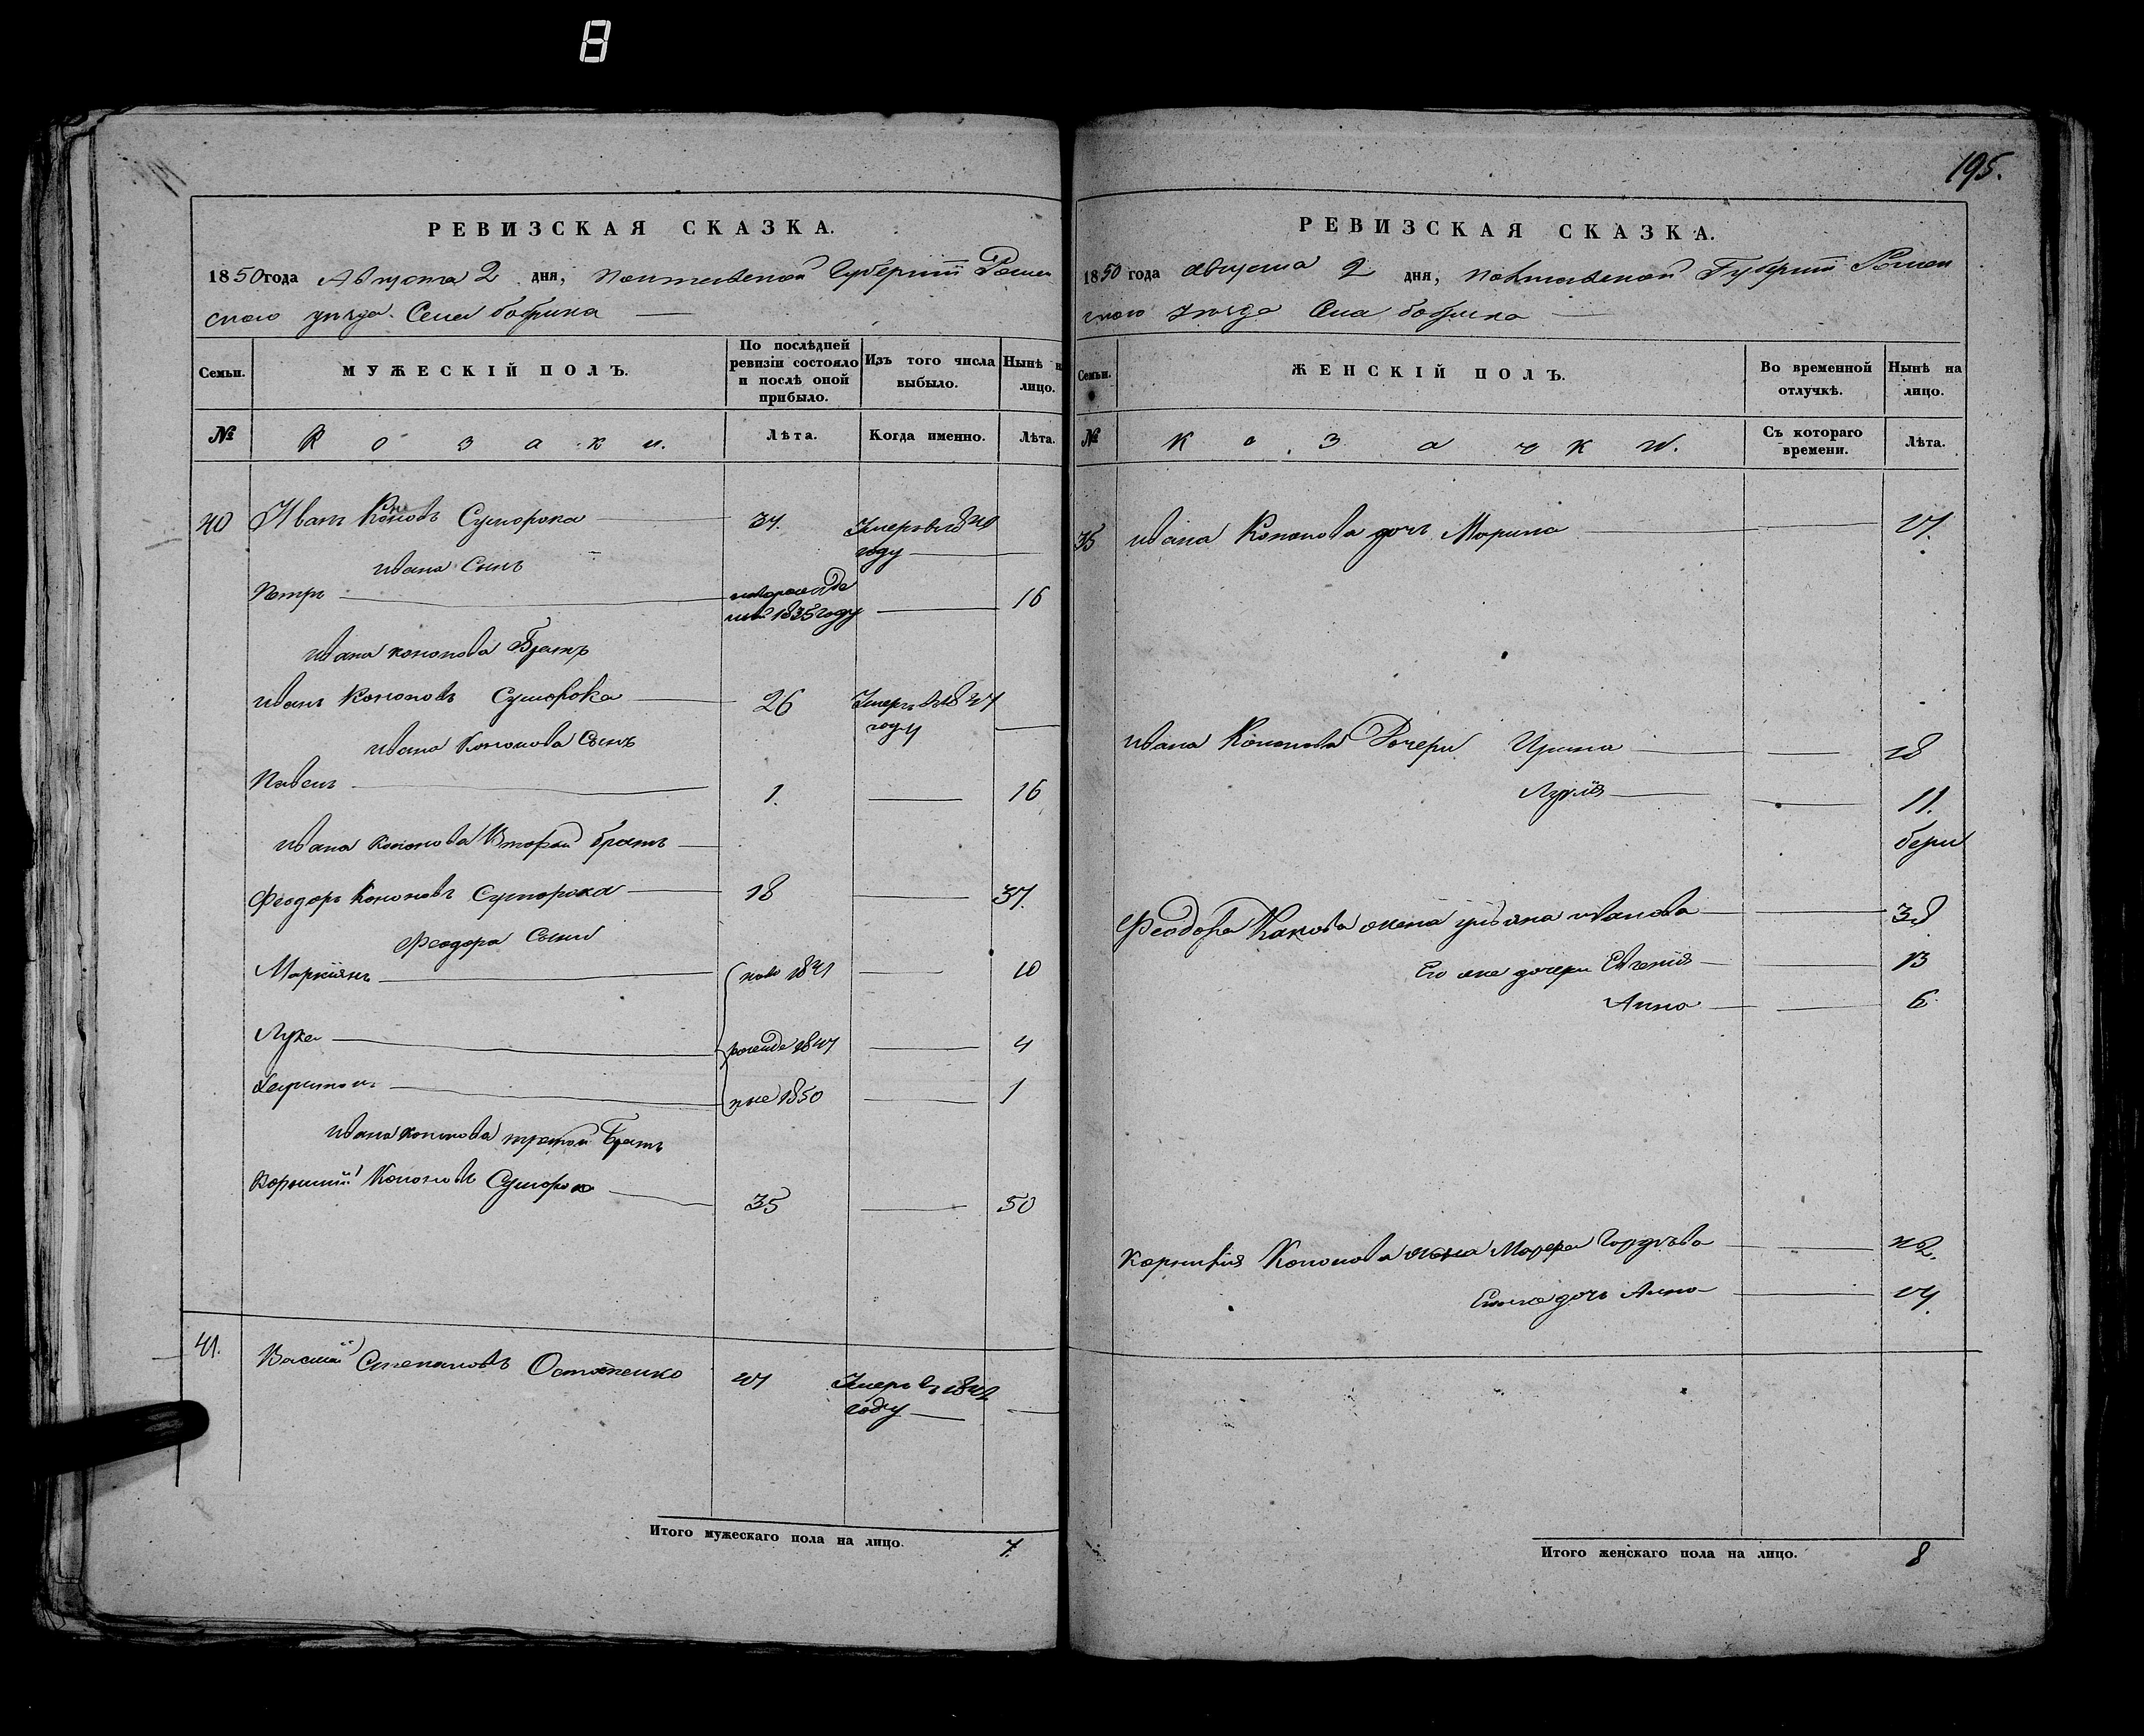 8
195.
РЕВИЗСКАЯ СКАЗКА.
1850 года Августа 2 дня, Полтавской Губернии Ромен
ского уезда Села бобрика
Семьи.
МУЖЕСКІЙ ПОЛЪ.
По послѣдней ревизіи состояло и послѣ оной прибыло.
Изъ того числа выбыло.
Нынѣ на лицо.
№
Козаки.
Лѣта.
Когда именно.
Лѣта.
40 Иванъ Кононовъ Суморока 34. Умеръ в 1840
году
ивана Сынъ
Петръ новорожде
нъ 1835 году 16
ивана кононова Братъ
иванъ Кононовъ Суморока 26 Умеръ въ 1847
году
ивана Кононова Сынъ
Павелъ 1. 16
ивана кононова Второй братъ
Феодоръ Кононовъ Суморока 18 37.
Феодора Сыни
Маркіянъ ново 1841 10
Лука рожде 1847 4
Харитонъ ные 1850 1
ивана кононова третой Братъ
Кононовъ Суморока 35 50
41. Василій Степановъ Остапенко Умеръ въ
году
Итого мужескаго пола на лицо. 7.
РЕВИЗСКАЯ СКАЗКА.
1850 года августа 2 дня, Полтавской Губернии Ромен
ского уезда Села бобрика
Семьи.
ЖЕНСКІЙ ПОЛЪ.
Во временной отлучкѣ.
Нынѣ на лицо.
№
Козачки.
Съ котораго времени.
Лѣта.
35 ивана Кононова дочь Марина
ивана Кононова Дочери Ирина 18
11.
Феодора жена ульяна иванова
Его же дочери Евгения 13
Анна 6.
Кононова жена
Его же дочь Анна
Итого женскаго пола на лицо. 8